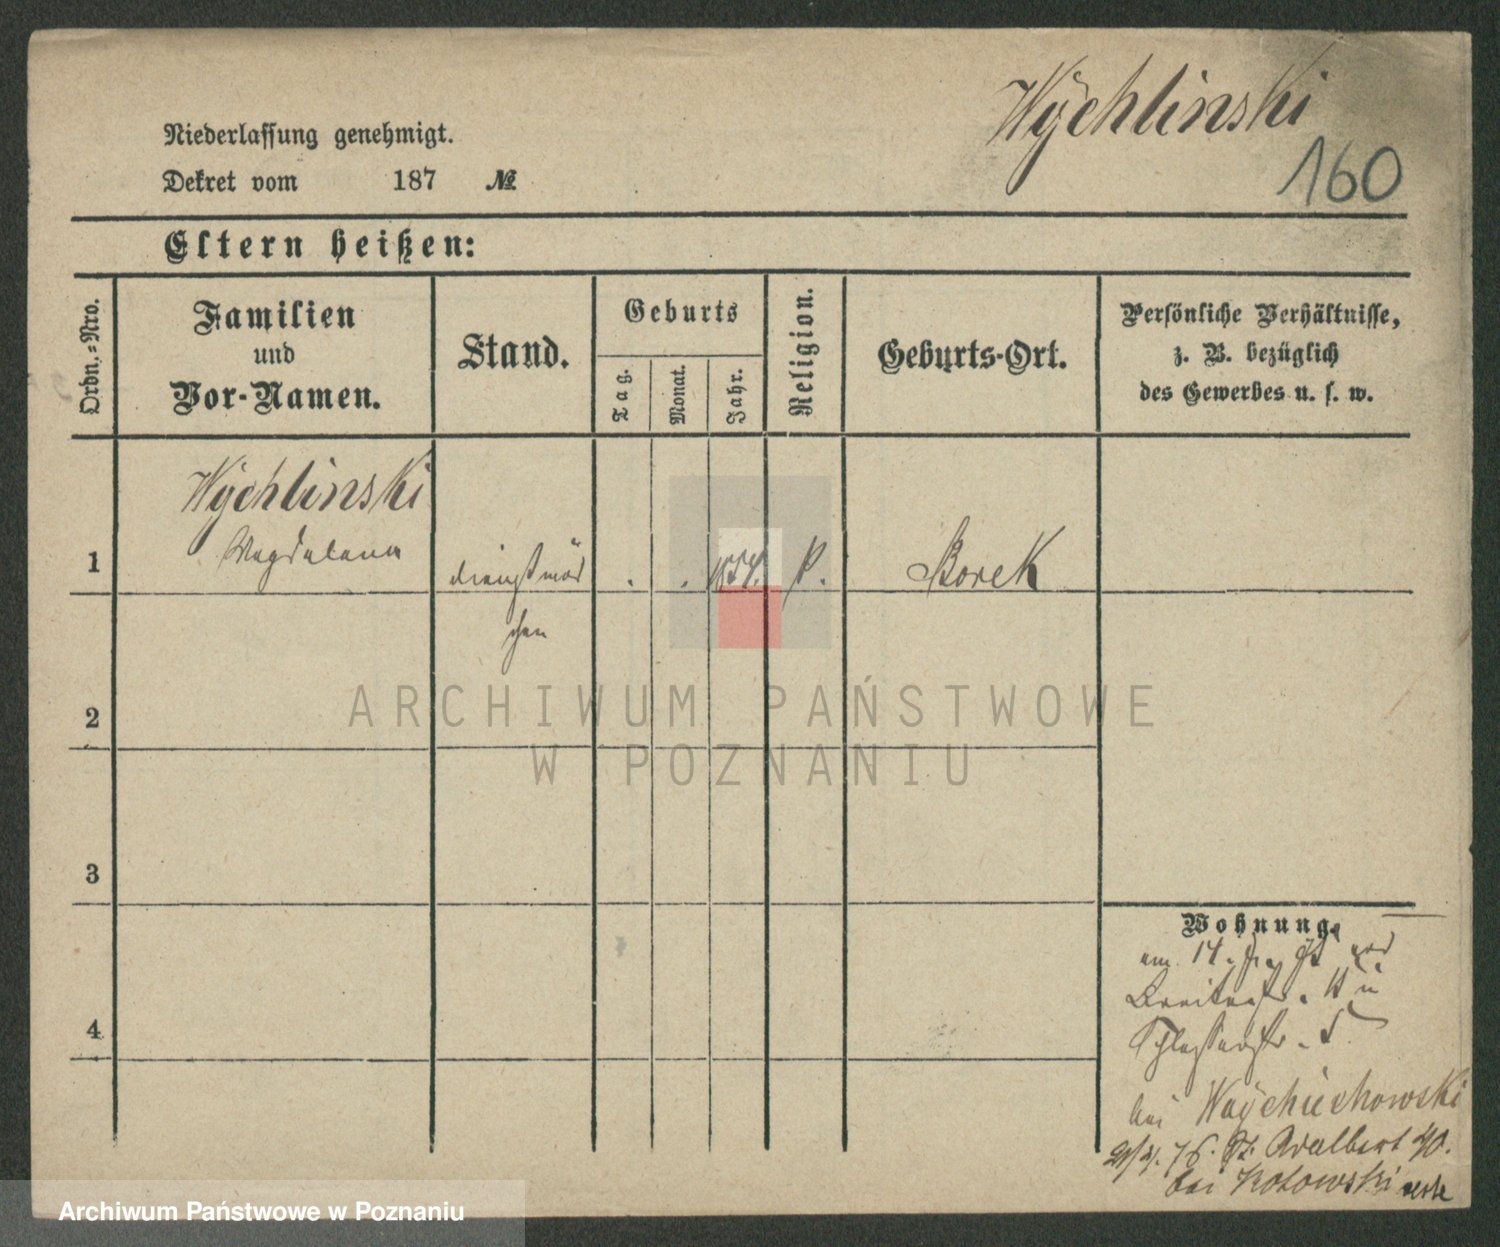 Wychlinski
160
Niederlassung genehmigt.
Dekret vom 187 №
Eltern heißen:
Ordn.-Nro.
Familien
und
Vor-Namen.
Stand.
Geburts
Tag.
Monat.
Jahr.
Religion.
Geburts-Ort.
Persönliche Verhältnisse,
z. B. bezüglich
des Gewerbes u. s. w.
Wychlinski
1 Magdalena dienstmäd 1854. Borek
chen
2
ARCHIWUM PAŃSTWOWE
W POZNANIU
3
Wohnung.
am 14.
Breitestr. 14
4
Schlosserstr. 5
bei Woyciechowski
76. St. Adalbert 40.
bei Kotowski
Archiwum Państwowe w Poznaniu